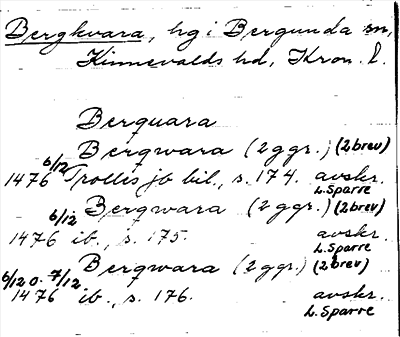 Bergkvara, hg i Bergunda sn,
Kinnevalds hd, Kron. l.
Berquara
Bergwara (2 ggr.) (2 brev)
6/12 1476 Trolles jb bil., s. 174. avskr.
L. Sparre
Bergwara (2 ggr.) (2 brev)
6/12 1476 ib., s. 175. avskr.
L. Sparre
Bergwara (2 ggr.) (2 brev)
6/12 o. 7/12 1476 ib., s. 176. avskr.
L. Sparre